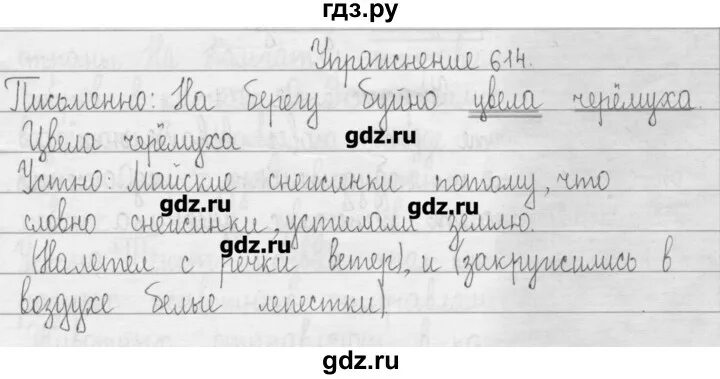 гдз.ру
Упражнение 614.
Письменно: На берегу буйно цвела черёмуха.
Цвела черёмуха
gdz.ru
Устно: Майские снежинки потому, что
gdz.ru
gdz.ru
словно снежинки, устилали землю.
gdz.ru
(Налетел с речки ветер), и (закружились в
воздухе белые лепестки)
gdz.ru